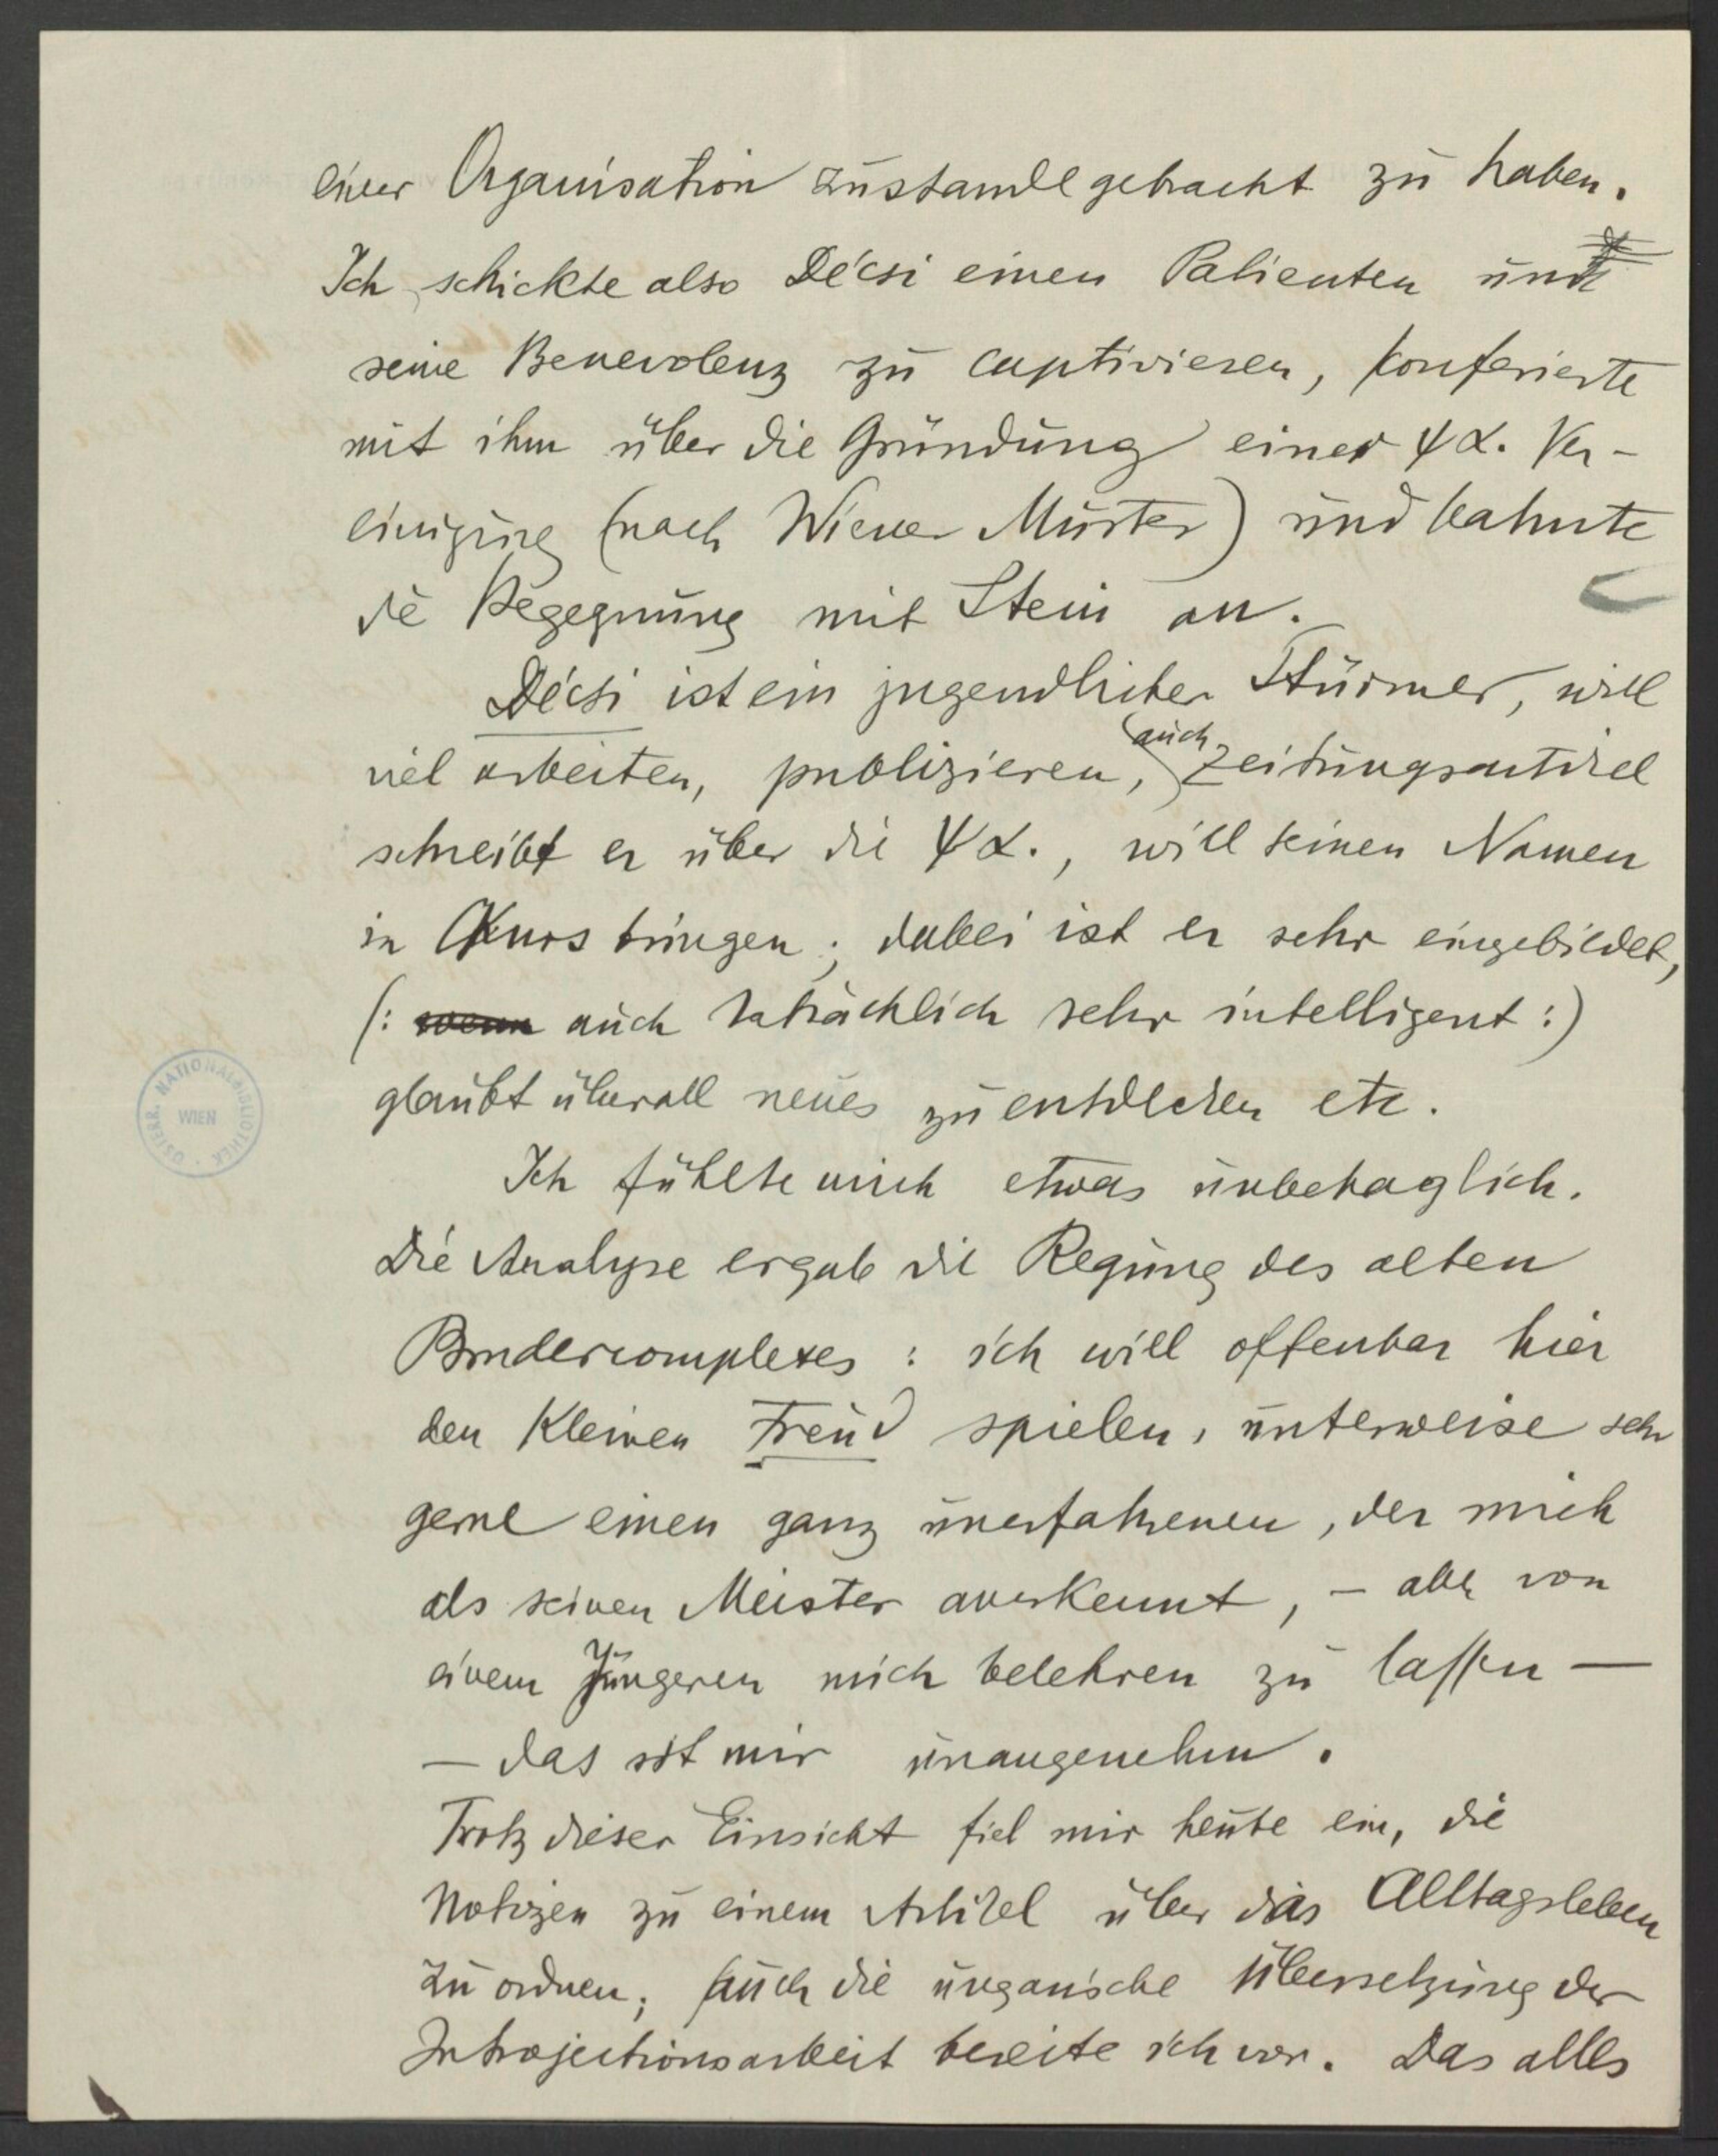 einer Organisation zustandegebracht zu haben.
Ich schickte also Décsi einen Patienten um
seine Benevolenz zu captivieren, konferierte
mit ihm über die Gründung einer ψα. Ver-
einigung (nach Wiener Muster) und bahnte
die Begegnung mit Stein an.
Décsi ist ein jugendlicher Stürmer, will
viel arbeiten, publizieren, auch Zeitungsartikel
schreibt er über die ψα., will seinen Namen
in Kurs bringen; dabei ist er sehr eingebildet,
(: wenn auch tatsächlich sehr intelligent :)
glaubt überall neues zu entdecken etc.
Ich fühlte mich etwas unbehaglich.
Die Analyse ergab die Regung des alten
Brudercomplexes: ich will offenbar hier
den kleinen Freud spielen, unterweise sehr
gerne einen ganz unerfahrenen, der mich
als seinen Meister anerkennt, – aber von
einem Jüngeren mich belehren zu lassen —
— das ist mir unangenehm.
Trotz dieser Einsicht fiel mir heute ein, die
Notizen zu einem Artikel über das Alltagsleben
zu ordnen; auch die ungarische Übersetzung der
Introjectionsarbeit bereite ich vor. Das alles
ÖSTERR. NATIONALBIBLIOTHEK
WIEN